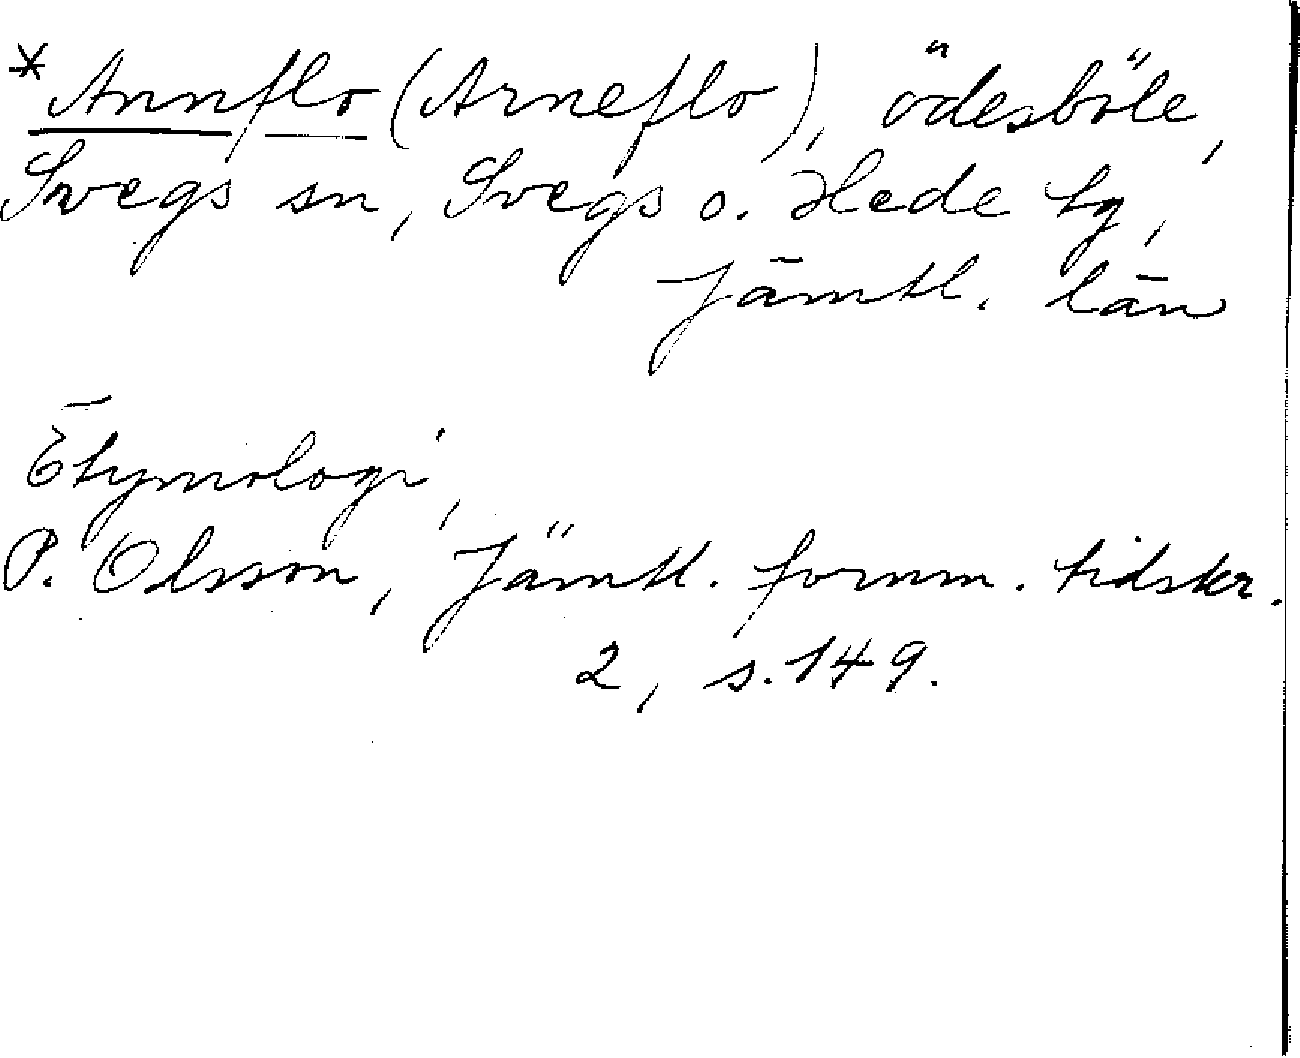 *Annflo (Arneflo), ödesböle,
Svegs sn, Svegs o. Hede tg,
Jämtl. län
Etymologi,
P. Olsson, Jämtl. fornm. tidskr.
2, s. 149.